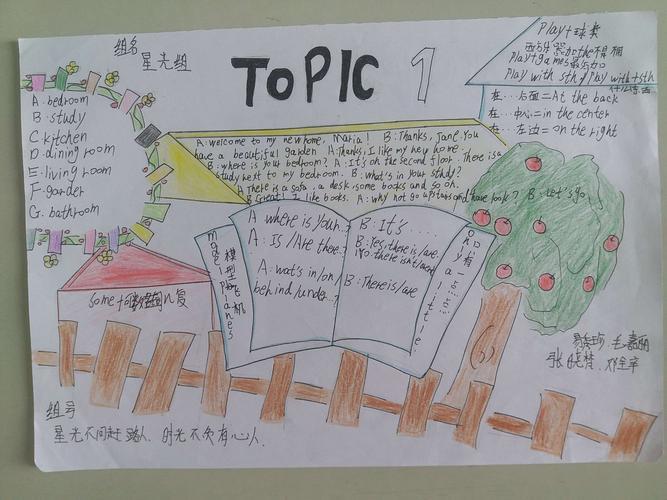 组名
星光组
TOPIC 1
A. bedroom
B. study
C. kitchen
D. dining room
E. living room
F. garder
G. bathroom
Play + 球类
Play + games
Play with sth / Play with + sth
在…后面 = At the back
在…中心 = in the center
在…左边 = on the right
A: welcome to my new home, Maria! B: Thanks, Jane. You
have a beautiful garden A: Thanks, I like my new home.
B: where is your bedroom? A: It's on the second floor. There is a
study next to my bedroom. B: what's in your study?
A: There is a sofa, a desk, some books and so on.
B: Great! I like books. A: why not go upstairs and have look? B: Let's go.
模型飞机
model planes
A where is your…
A: Is/Are there…?
A: wat's in/on/
behind/under…?
B: It's ….
B: Yes, there is/are.
No, there isn't/aren't
B: There is/are
只有一点点
only a little.
Some+可数
组号
星光不问赶路人, 时光不负有心人.